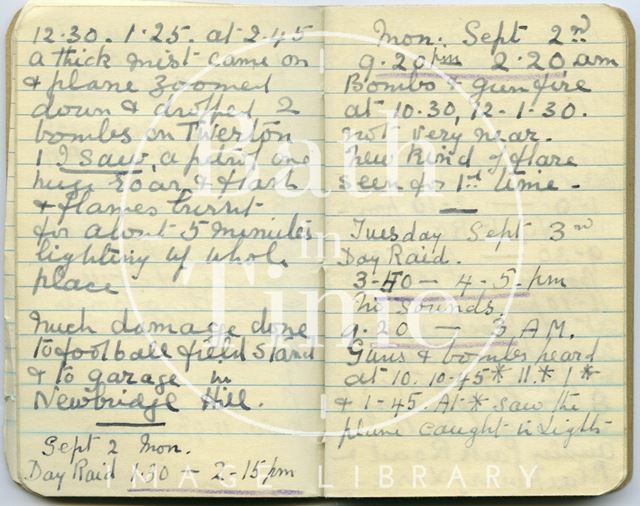 12.30. 1.25. at 2.45
a thick mist came on
& plane zoomed
down & dropped 2
bombs on Twerton
1 I saw, a and
huge roar & flash
& flames burst
for about 5 minutes
lighting up whole
place
Much damage done
to football field stand
& to garage in
Newbridge Hill.
Sept 2 Mon.
Day Raid 1.30 - 2-15pm
Mon. Sept 2nd
9.20pm - 2.20 am
Bombs & gun fire
at 10.30, 12-1.30.
not very near.
New kind of flare
seen for 1st time -
Tuesday Sept 3rd
Day Raid.
3-10 - 4.5. pm
No sounds.
9.20 - 3 AM.
Guns & bombs heard
at 10. 10-45* 11.* 1*
& 1-45. At * saw the
plane caught in lights
Bath in Time
IMAGE LIBRARY